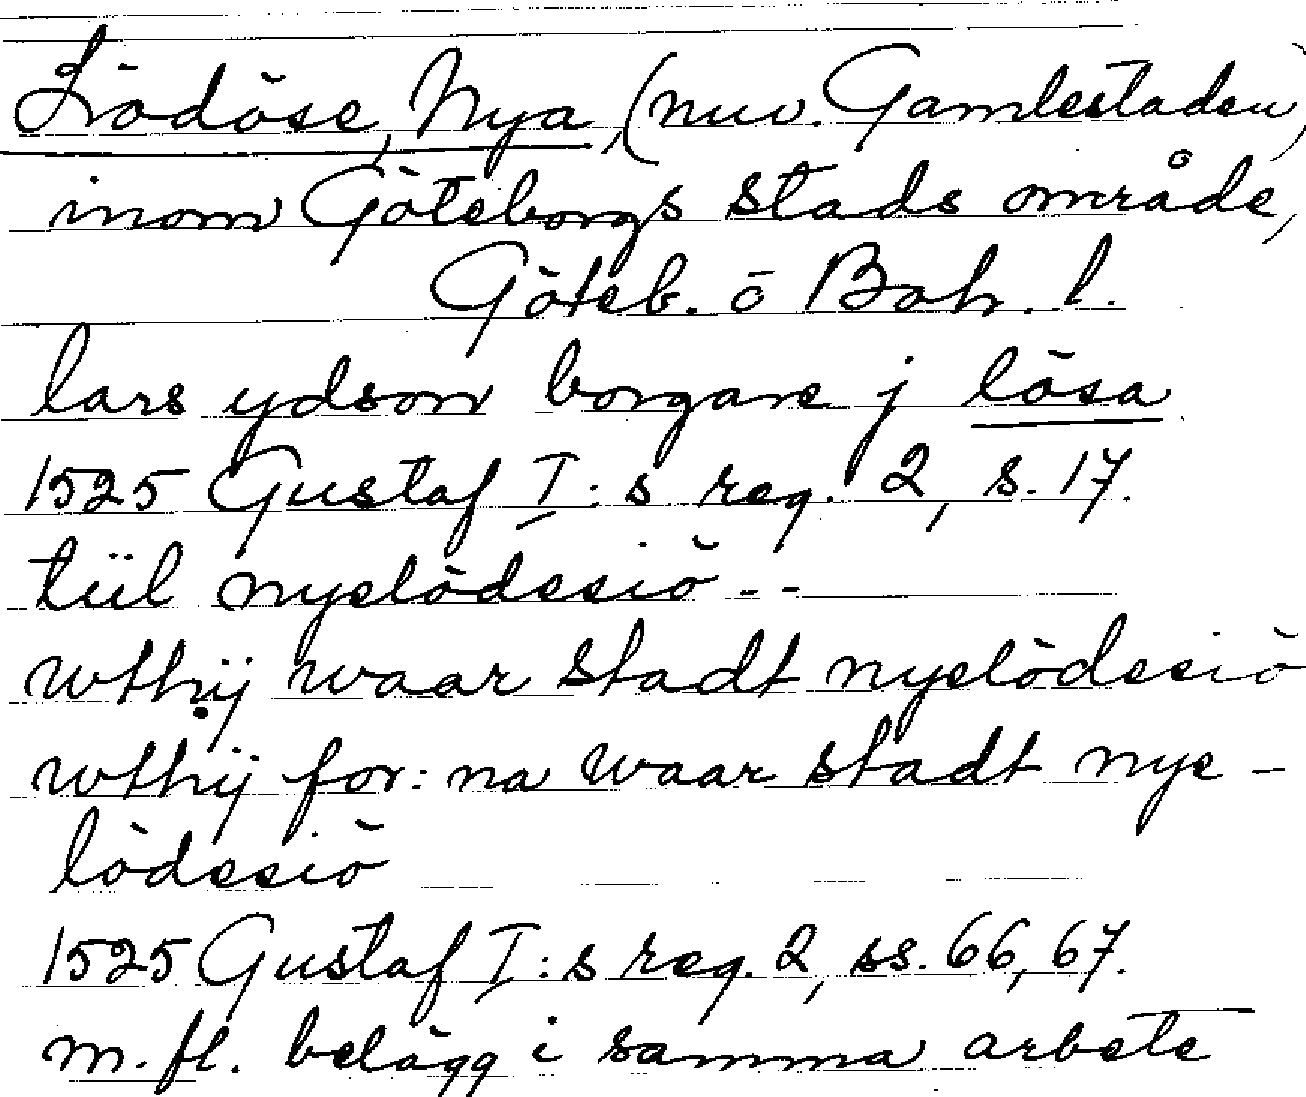 Lödöse, Nya, (nuv. Gamlestaden)
inom Göteborgs stads område,
Göteb. o Boh. l.
lars ydson borgare j lösa
1525 Gustaf I:s reg. 2, s. 17.
tiil nyelödesiö --
wthij waar stadt nyelödesiö
wthij for:na waar stadt nye-
lödesiö
1525 Gustaf I:s reg. 2, ss. 66, 67.
m.fl. belägg i samma arbete